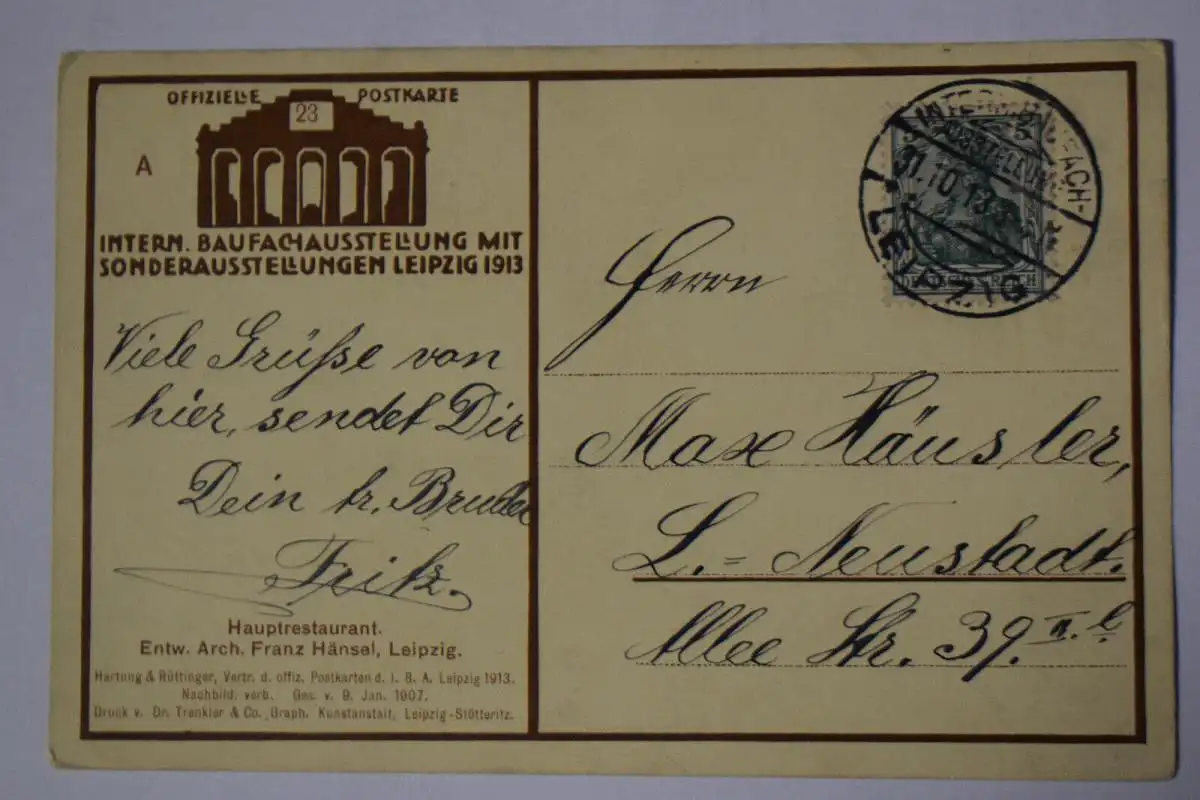 OFFIZIELLE POSTKARTE
23
A
INTERN. BAUFACHAUSSTELLUNG MIT
SONDERAUSSTELLUNGEN LEIPZIG 1913
Viele Grüße von
hier, sendet Dir
Dein tr. Bruder
Fritz.
Hauptrestaurant.
Entw. Arch. Franz Hänsel, Leipzig.
Hartung & Rüttinger, Vertr. d. offiz. Postkarten d. I. B. A. Leipzig 1913.
Nachbild. verb. Ges. v. 9. Jan. 1907.
Druck v. Dr. Trenkler & Co., Graph. Kunstanstalt, Leipzig-Stötteritz.
31.10.13
LEIPZIG
Herrn
Max Häusler,
L.= Neustadt.
Allee Str. 39. II. l